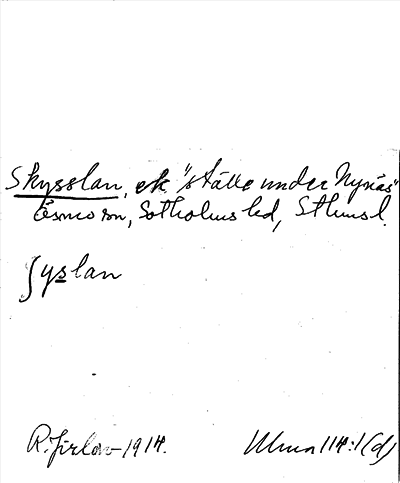 Skysslan, ek. "ställe under Nynäs"
Ösmo sn, Sotholms hd, Sthms l.
ʃyslan
R. Jirlow 1914.
Ulma 114:1(d)